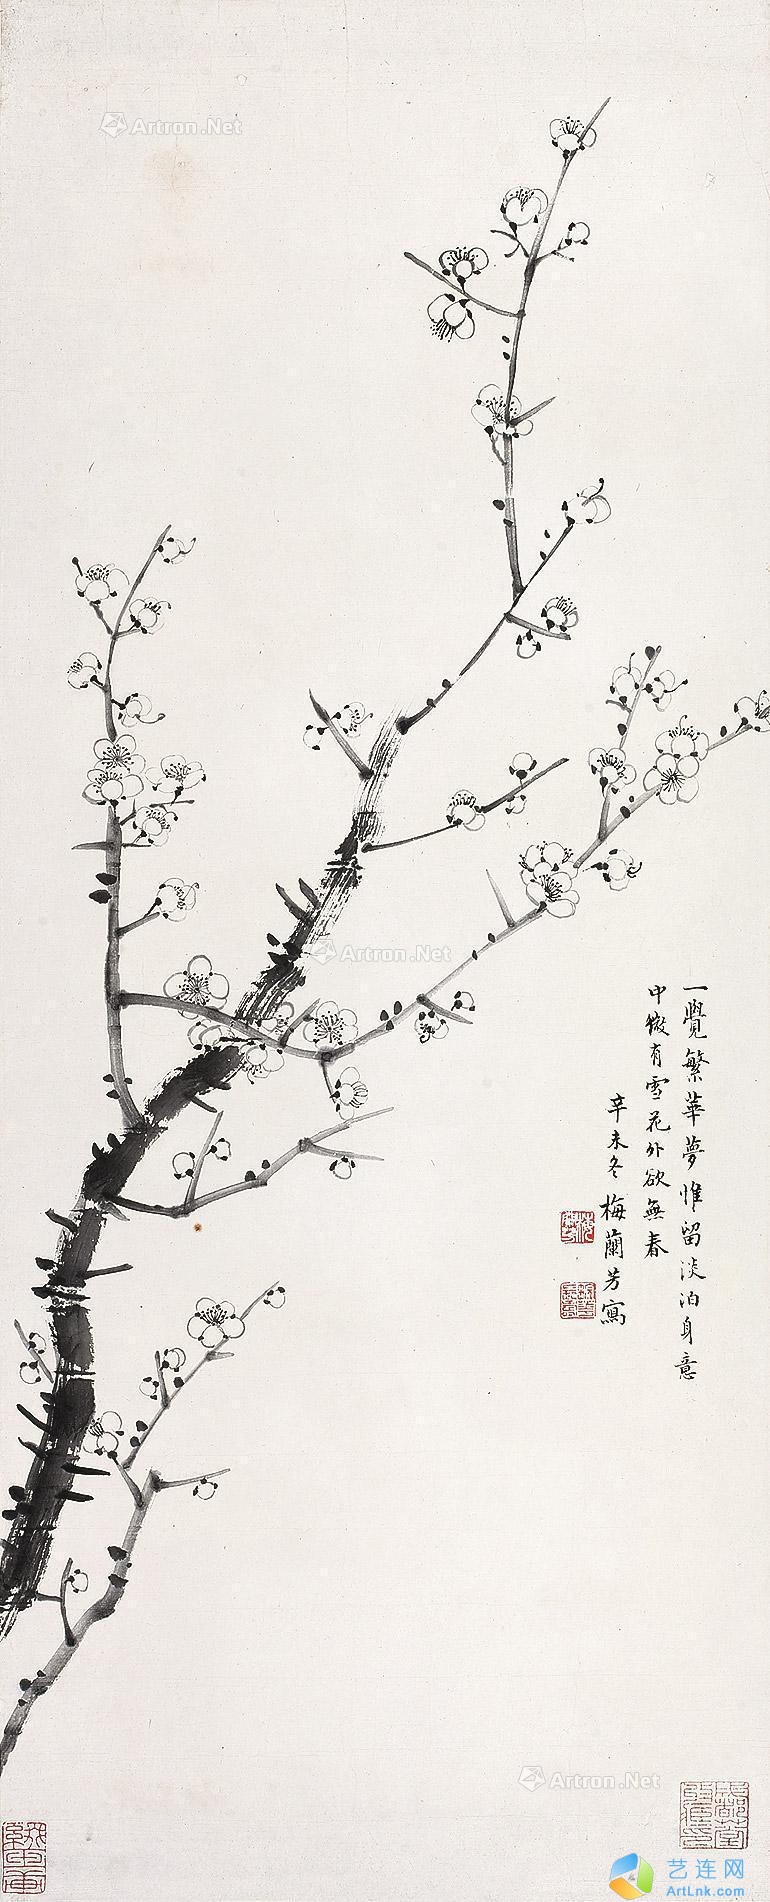 一覺繁華夢惟留淡泊身意
中微有雪花外欲無春
辛未冬 梅蘭芳寫
Artron.Net
Artron.Net
Artron.Net
艺连网
ArtLnk.com